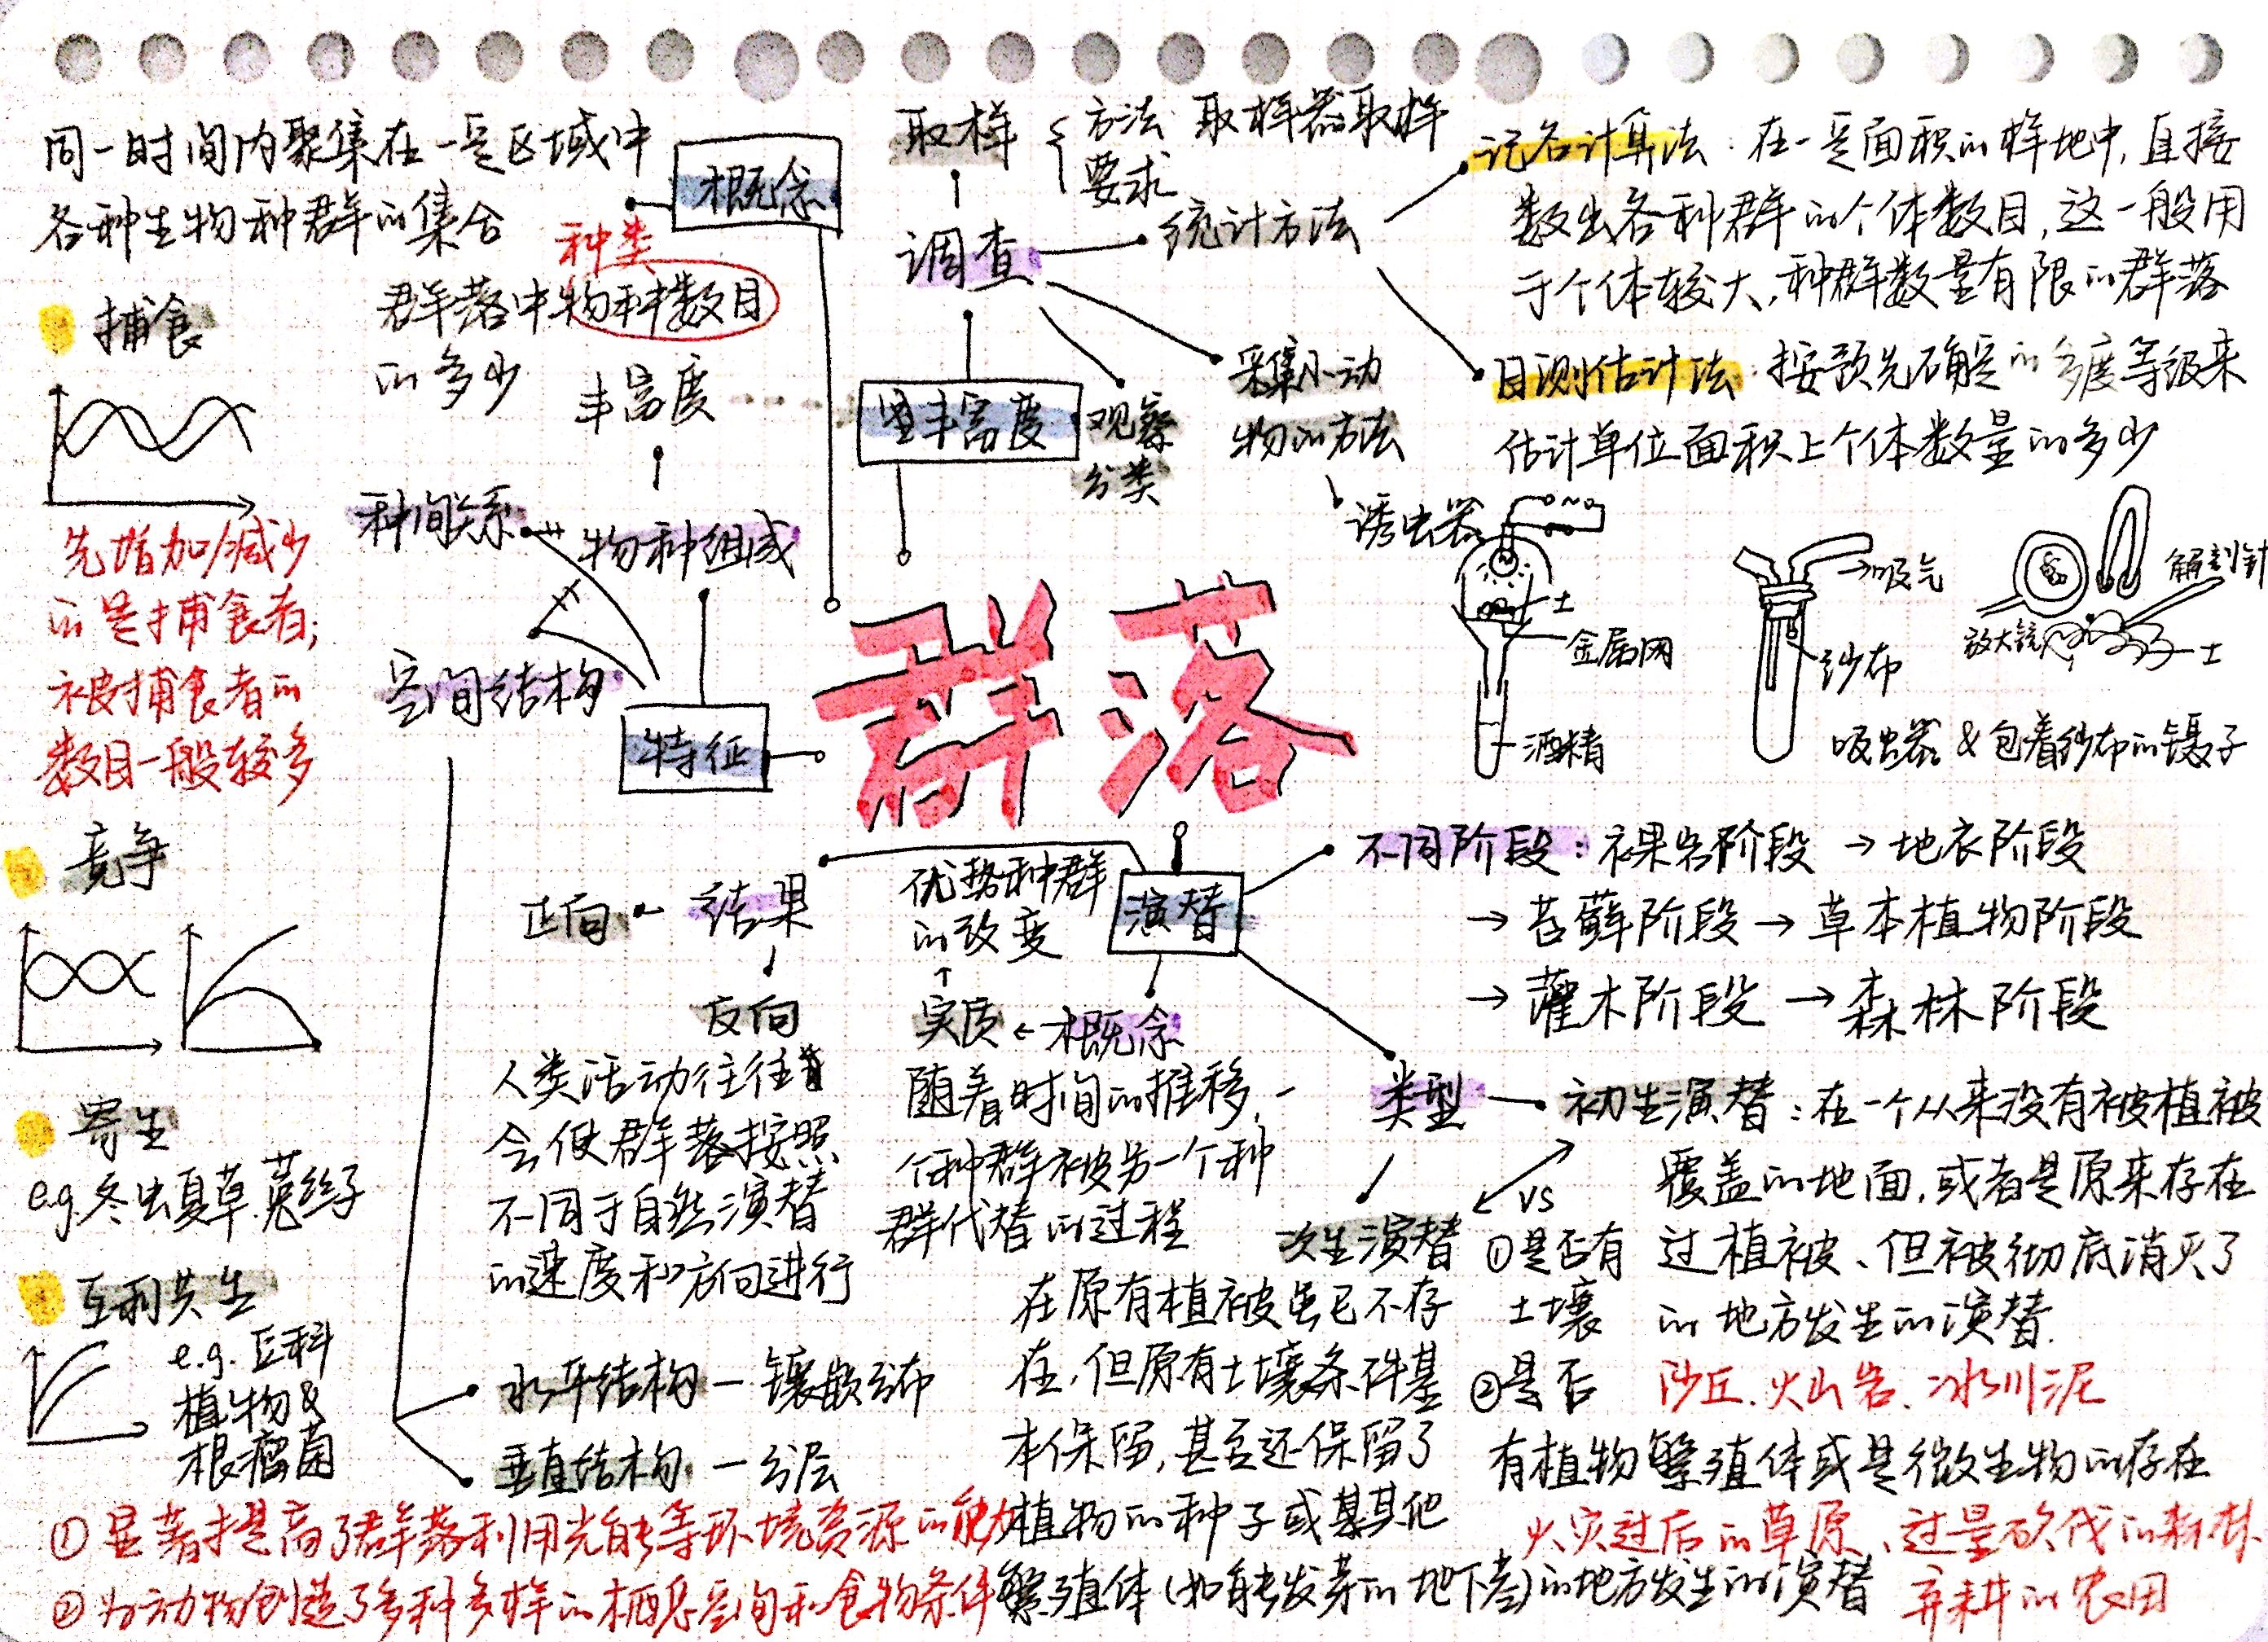 同一时间内聚集在一定区域中
各种生物种群的集合
概念
种类
群落中物种数目
的多少
丰富度
取样
方法 取样器取样
要求
调查
统计方法
记名计算法：在一定面积的样地中，直接
数出各种群的个体数目，这一般用
于个体较大，种群数量有限的群落
目测估计法：按预先确定的多度等级来
估计单位面积上个体数量的多少
丰富度
观察
分类
采集小动
物的方法
诱虫器
土
金属网
酒精
吸气
纱布
放大镜
解剖针
土
吸虫器&包着纱布的镊子
捕食
先增加/减少
的是捕食者；
被捕食者的
数目一般较多
种间关系
物种组成
空间结构
特征
群落
竞争
寄生
e.g.冬虫夏草.菟丝子
互利共生
e.g. 豆科
植物&
根瘤菌
正向
结果
反向
人类活动往往
会使群落按照
不同于自然演替
的速度和方向进行
优势种群
的改变
实质←概念
随着时间的推移，一
个种群被另一个种
群代替的过程
演替
不同阶段：裸岩阶段→地衣阶段
→苔藓阶段→草本植物阶段
→灌木阶段→森林阶段
类型
初生演替：在一个从来没有被植被
覆盖的地面，或者是原来存在
过植被、但被彻底消灭了
的地方发生的演替.
沙丘.火山岩.冰川泥
VS
①是否有
土壤
②是否
有植物繁殖体或是微生物的存在
次生演替
在原有植被虽已不存
在，但原有土壤条件基
本保留，甚至还保留了
植物的种子或其他
繁殖体(如能发芽的地下茎)的地方发生的演替
火灾过后的草原、过量砍伐的森林、
弃耕的农田
水平结构—镶嵌分布
垂直结构—分层
①显著提高了群落利用光能等环境资源的能力
②为动物创造了多种多样的栖息空间和食物条件